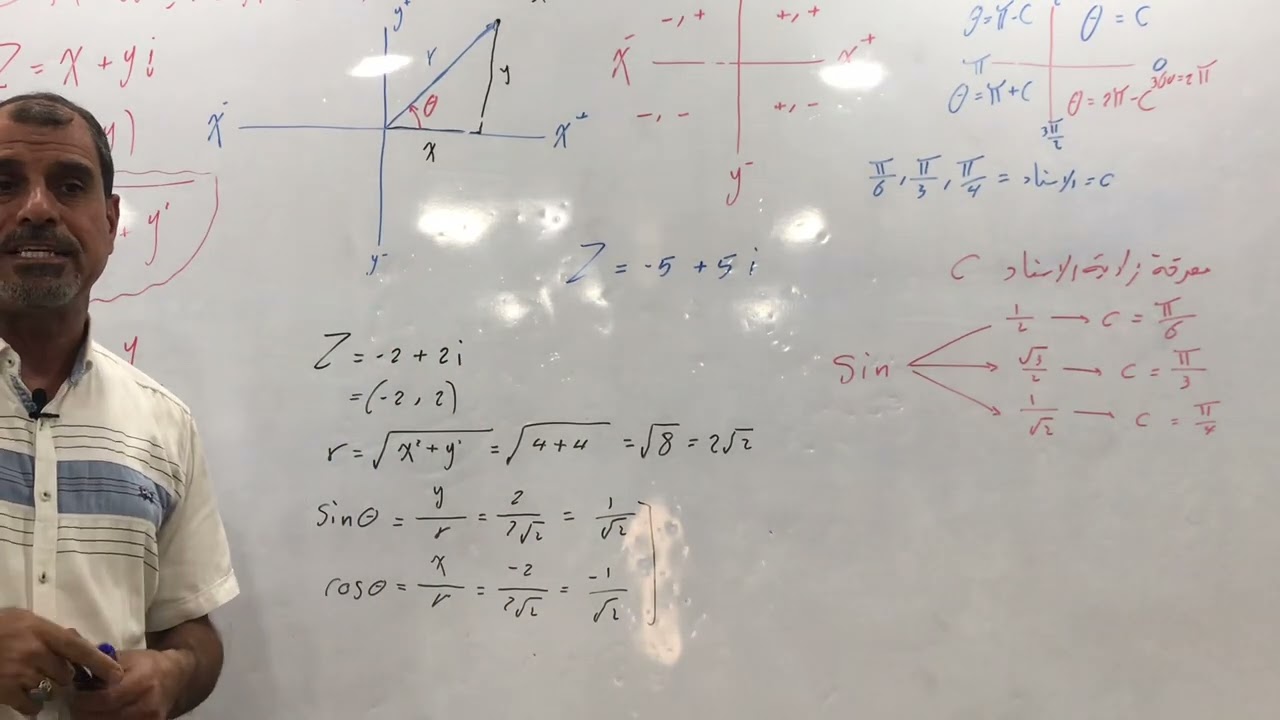 Z = x + yi
y)
+ y²
y
y⁺
r
y
θ
x⁻
x⁺
x
y⁻
-, +
+, +
x⁻
x⁺
-, -
+, -
y⁻
θ = π - C
θ = C
π
0
360 = 2π
θ = π + C
θ = 2π - C
3π/2
π/6 , π/3 , π/4 = الاسناد = C
Z = -5 + 5i
معرفة زاوية الاسناد C
Sin
1/2 → C = π/6
√3/2 → C = π/3
1/√2 → C = π/4
Z = -2 + 2i
= (-2 , 2)
r = √(x² + y²) = √(4 + 4) = √8 = 2√2
Sinθ = y/r = 2/2√2 = 1/√2
cosθ = x/r = -2/2√2 = -1/√2